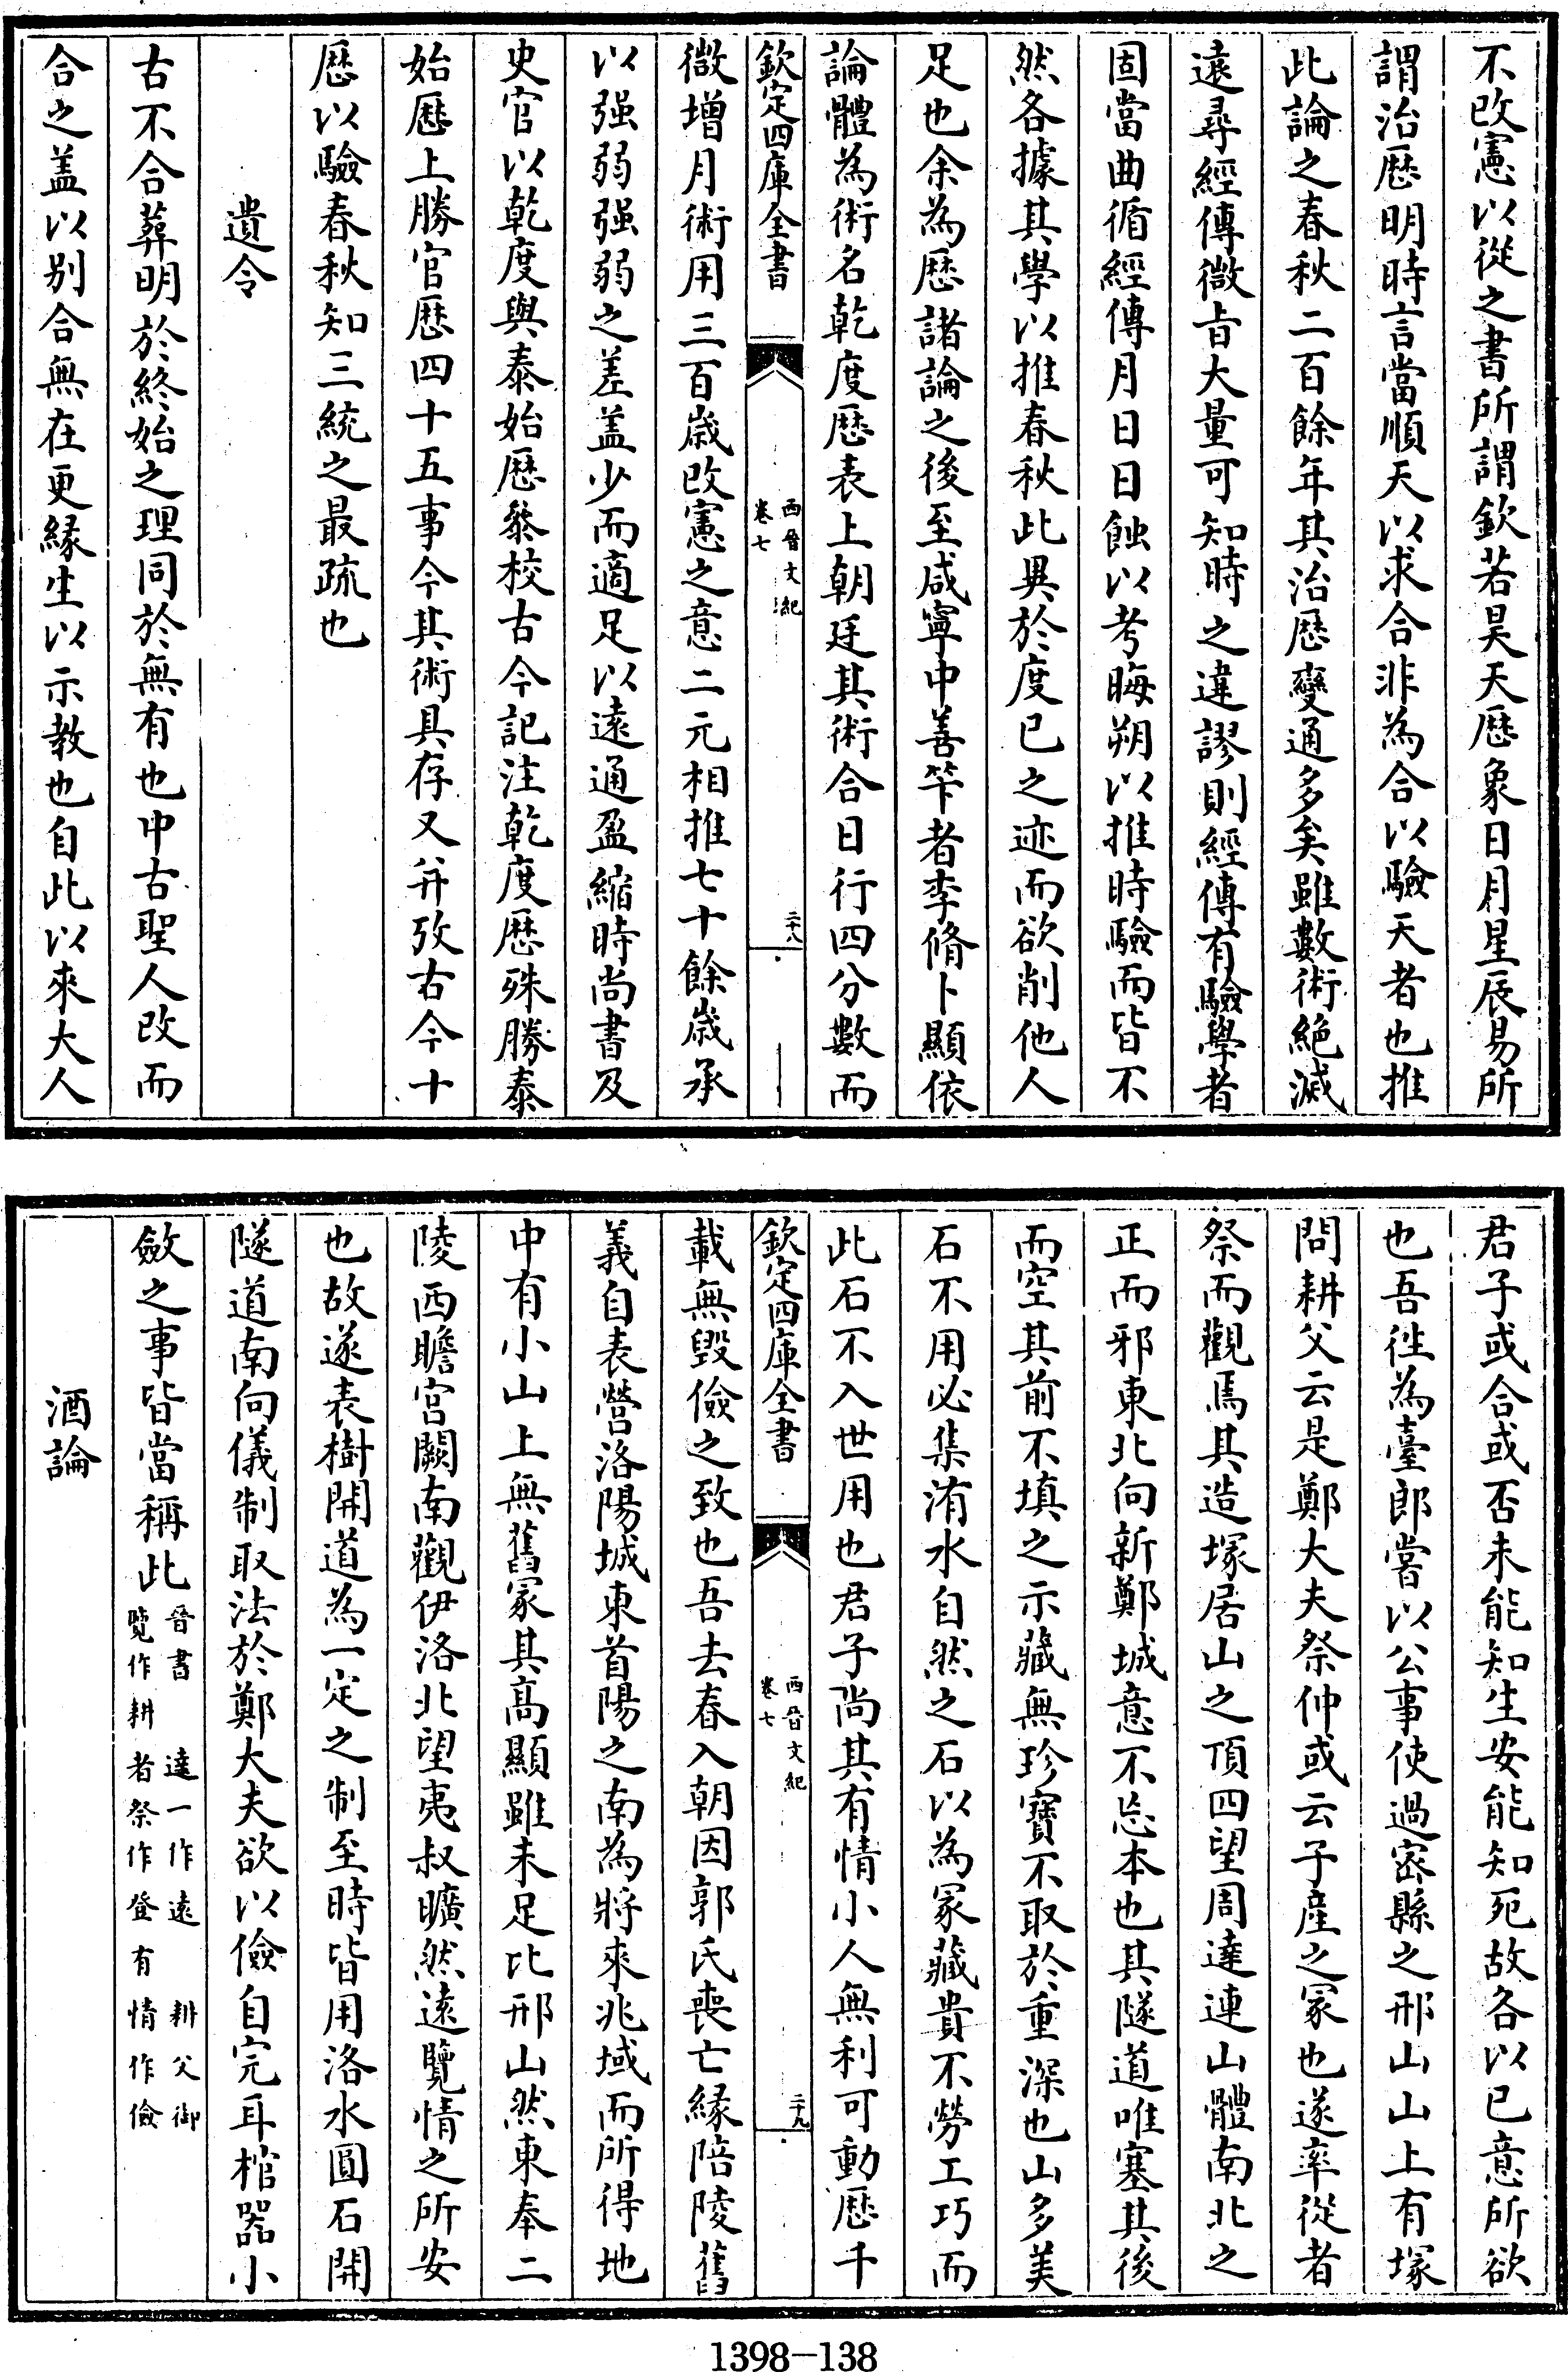 不改憲以從之書所謂欽若昊天厯象日月星辰易所
謂治厯明時言當順天以求合非為合以驗天者也推
此論之春秋二百餘年其治厯變通多矣雖數術絶滅
遠尋經傳微旨大量可知時之違謬則經傳有驗學者
固當曲循經傳月日日蝕以考晦朔以推時驗而皆不
然各據其學以推春秋此異於度已之迹而欲削他人
足也余為厯諸論之後至咸寧中善筭者李脩卜顯依
論體為術名乾度厯表上朝廷其術合日行四分數而
欽定四庫全書
西晉文紀
卷七
二十八
微增月術用三百歲改憲之意二元相推七十餘歲承
以强弱强弱之差盖少而適足以遠通盈縮時尚書及
史官以乾度與泰始厯叅校古今記注乾度厯殊勝泰
始厯上勝官厯四十五事今其術具存又并攷古今十
厯以驗春秋知三統之最疏也
遺令
古不合葬明於終始之理同於無有也中古聖人改而
合之盖以别合無在更緣生以示教也自此以來大人
君子或合或否未能知生安能知死故各以已意所欲
也吾徃為臺郎嘗以公事使過宻縣之邢山山上有塚
問耕父云是鄭大夫祭仲或云子產之冢也遂率從者
祭而觀焉其造塚居山之頂四望周達連山體南北之
正而邪東北向新鄭城意不忘本也其隧道唯塞其後
而空其前不填之示藏無珍寶不取於重深也山多美
石不用必集洧水自然之石以為冢藏貴不勞工巧而
此石不入世用也君子尚其有情小人無利可動厯千
欽定四庫全書
西晉文紀
卷七
二十九
載無毀儉之致也吾去春入朝因郭氏喪亡緣陪陵舊
義自表營洛陽城東首陽之南為將來兆域而所得地
中有小山上無舊冢其高顯雖未足比邢山然東奉二
陵西瞻宫闕南觀伊洛北望夷叔曠然遠覽情之所安
也故遂表樹開道為一定之制至時皆用洛水圓石開
隧道南向儀制取法於鄭大夫欲以儉自完耳棺器小
斂之事皆當稱此晉書 達一作遠 耕父御
覽作耕者祭作登有情作儉
酒論
1398-138